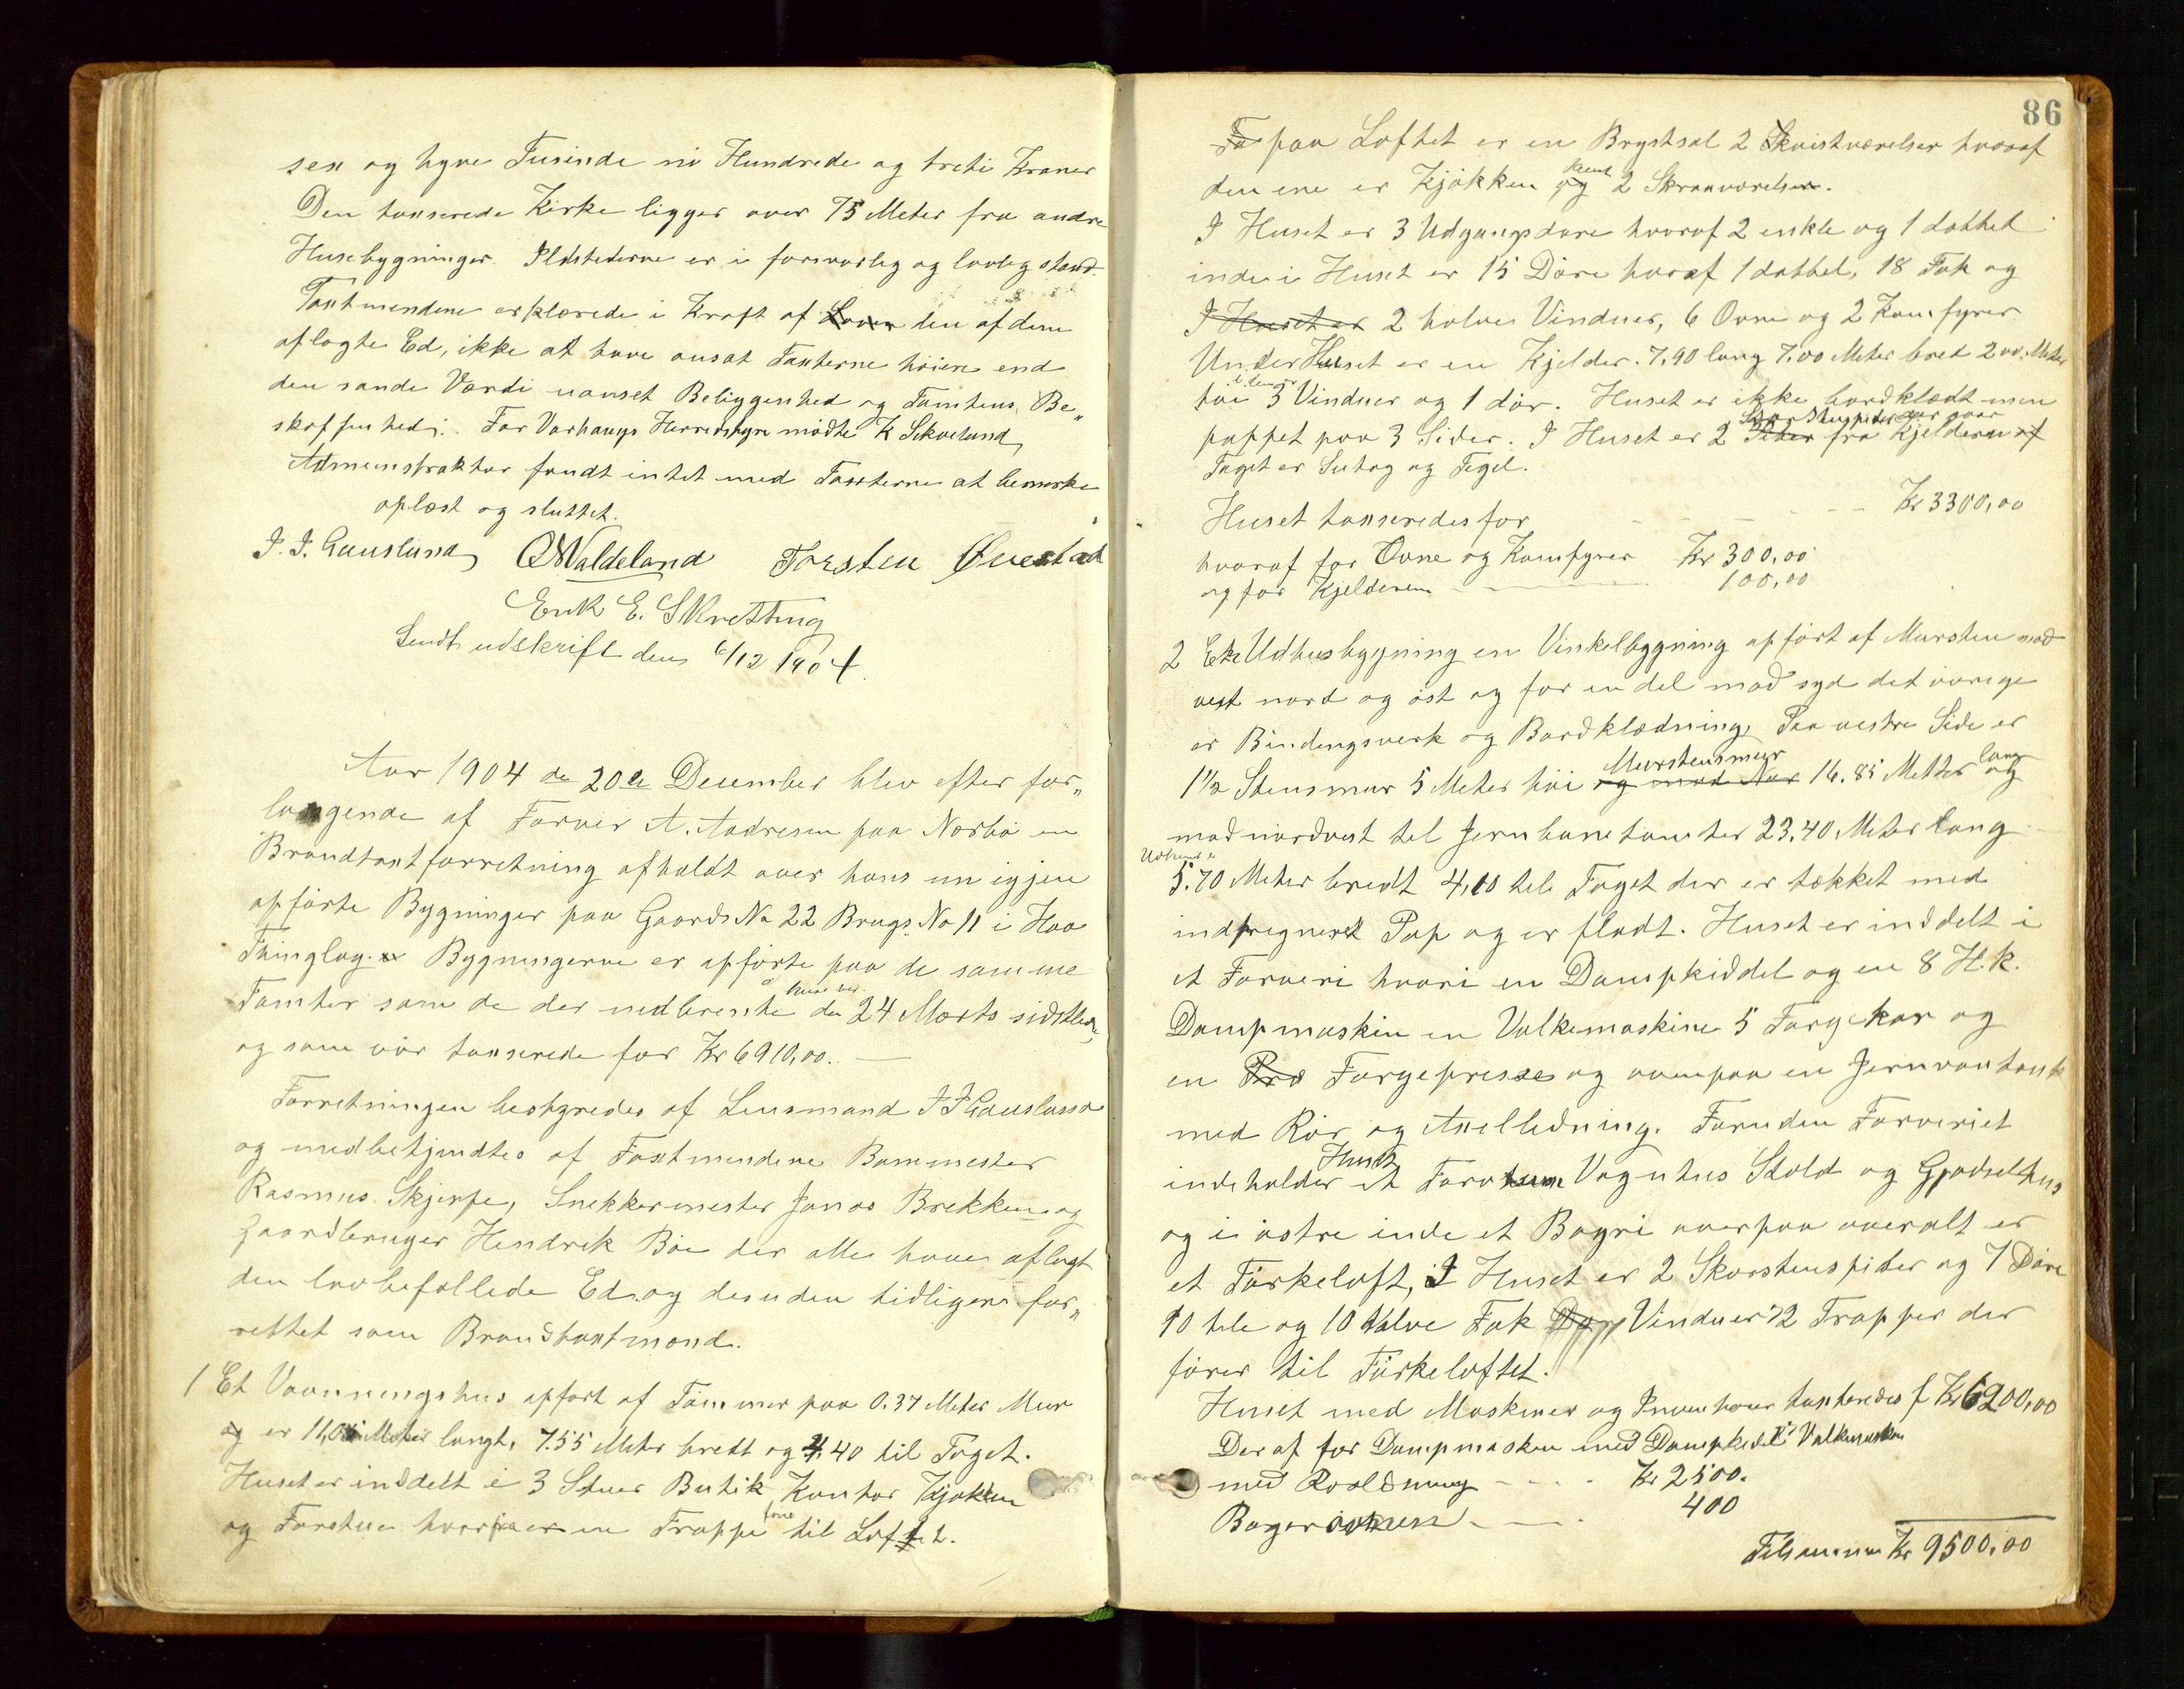 sex og tyve Tusinde ni Hundrede og treti Kroner
Den taxserede Kirke ligger over 75 Meter fra andre
Husebygninger. Ildstederne er i forsvarlig og lovlig stand.
Taxtmendene erklærede i Kraft af den af dem
aflagte Ed, ikke at have ansat Taxterne höiere end
den sande Værdi uanset Beliggenhed og Tomtens Be„
skaffenhed. For Varhaugs Herredstyre mödte K Sikveland,
Adminstraktor fandt intet med Taxterne at bemerke
oplæst og sluttet.
J. J. Gauslund O Waldeland Torsten Öuestad
Erik E. Skretting
Sendt udskrift den 6/12 1904.
Aar 1904 den 20de December blev efter for„
langende af Farver A. Andresen paa Nærbö en
Brandtaxtforretning afholdt over hans nu igjen
opförte Bygninger paa Gaards No 22 Brugs No 11 i Haa
Thinglag. Bygningerne er opförte paa de samme
Tomter som de der nedbrente den 24 Marts sidstleden,
og som var taxserede for Kr 6910,00. —
Forretningen bestyredes af Lensmand J J Gauslund
og medbetjendtes af Taxtmendene Bammester
Rasmus Skjerpe, Snekkermester Jonas Brekken og
Gaardbruger Hendrek Böe der alle have aflagt
den lovbefallede Ed og desuden tidligere for„
rettet som Brandtaxtmænd.
1 Et Vaanningshus opfört af Tömmer paa 0.37 Meter Mur
og er 11,05 Meter langt, 7.55 Meter bredt og 4.40 til Taget.
Huset er inddelt i 3 Stuer Butik Kontor Kjökken
og Forstue hvorfra er en Trappe til Loftet.
86
paa Loftet er en Brystsal 2 Kvistværelser hvoraf
den ene er Kjökken samt 2 Skraaværelser.
I Huset er 3 Udgangsdöre hvoraf 2 enkle og 1 dobbel
inde i Huset er 15 Döre hvoraf 1 dobbel, 18 Fak og
I Huset er 2 halve Vinduer, 6 Ovne og 2 Komfyrer
Under Huset er en Kjelder. 7,90 lang 7,00 Meter bred 2 00 Meter
höi 3 Vinduer og 1 dör. Huset er ikke bordklædt men
pappet paa 3 Sider. I Huset er 2 Skorstenspiber fra Kjelderen af
Taget er Sutag og Tegel.
Huset taxseredes for - - - - Kr 3300,00
hvoraf for Ovne og Komfyrer Kr 300,00
og for Kjelderen - - - 100,00
2 En Udhusbygning en Vinkelbygning opfört af Mursten mod
vest nord og öst og for en del mod syd det övrige
er Bindingsverk og Bordklædning, Paa vestre Side er
Murstensmur lang
1½ Stensmur 5 Meter höi og mod Nor 16.85 Metter og
mod nordvest til Jernbanetomten 23.40 Meter lang
5.70 Meter bredt 4,10 tel Taget der er tækket med
indpregneret Pap og er fladt. Huset er inddelt i
et Farveri hvori en Dampkiddel og en 8 H.k.
Dampmaskin en Valkemaskine 5 Fargekar og
en Fargepresse og ovenpaa en Jernvantank
med Rör og Axelledning. Foruden Farveriet
Huset
indeholder et Vognhus Stald og Gjödselhus
og i östre inde et Bagri overpaa overalt er
et Törkeloft, I Huset er 2 Skorstenspiber og 7 Döre
10 hele og 10 halve Fak Vinduer 2 Trapper der
förer til Törkeloftet.
Huset med Maskiner og Inventarer taxteredes f Kr 6200,00
Der af for Dampmaskin med Dampkidel Valkemaskin
med Rörledning - - - Kr 2500.
Bagerovnen - - - 400
Tilsammen Kr 9500,00